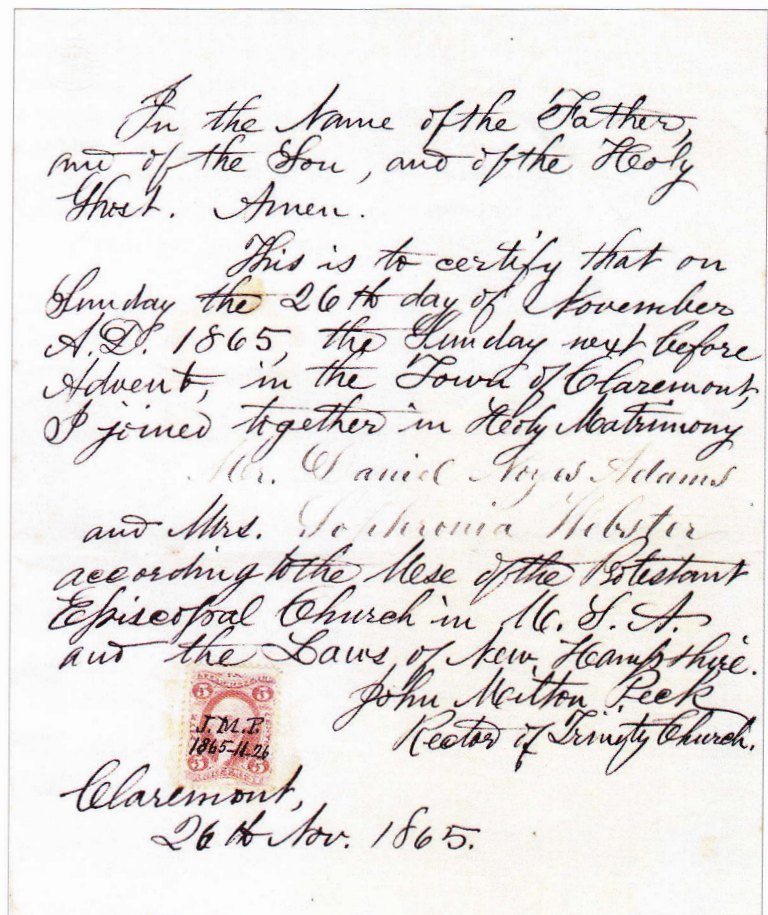 In the Name of the Father,
and of the Son, and of the Holy
Ghost. Amen.
This is to certify that on
Sunday the 26th day of November
A.D. 1865, the Sunday next before
Advent, in the Town of Claremont,
I joined together in Holy Matrimony
Mr. Daniel Noyes Adams
and Mrs. Sophronia Webster
according to the Use of the Protestant
Episcopal Church in U. S. A.
and the Laws of New Hampshire.
John Milton Peck
Rector of Trinity Church.
5 5
J.M.P.
1865-11-26
5 5
Claremont,
26th Nov. 1865.